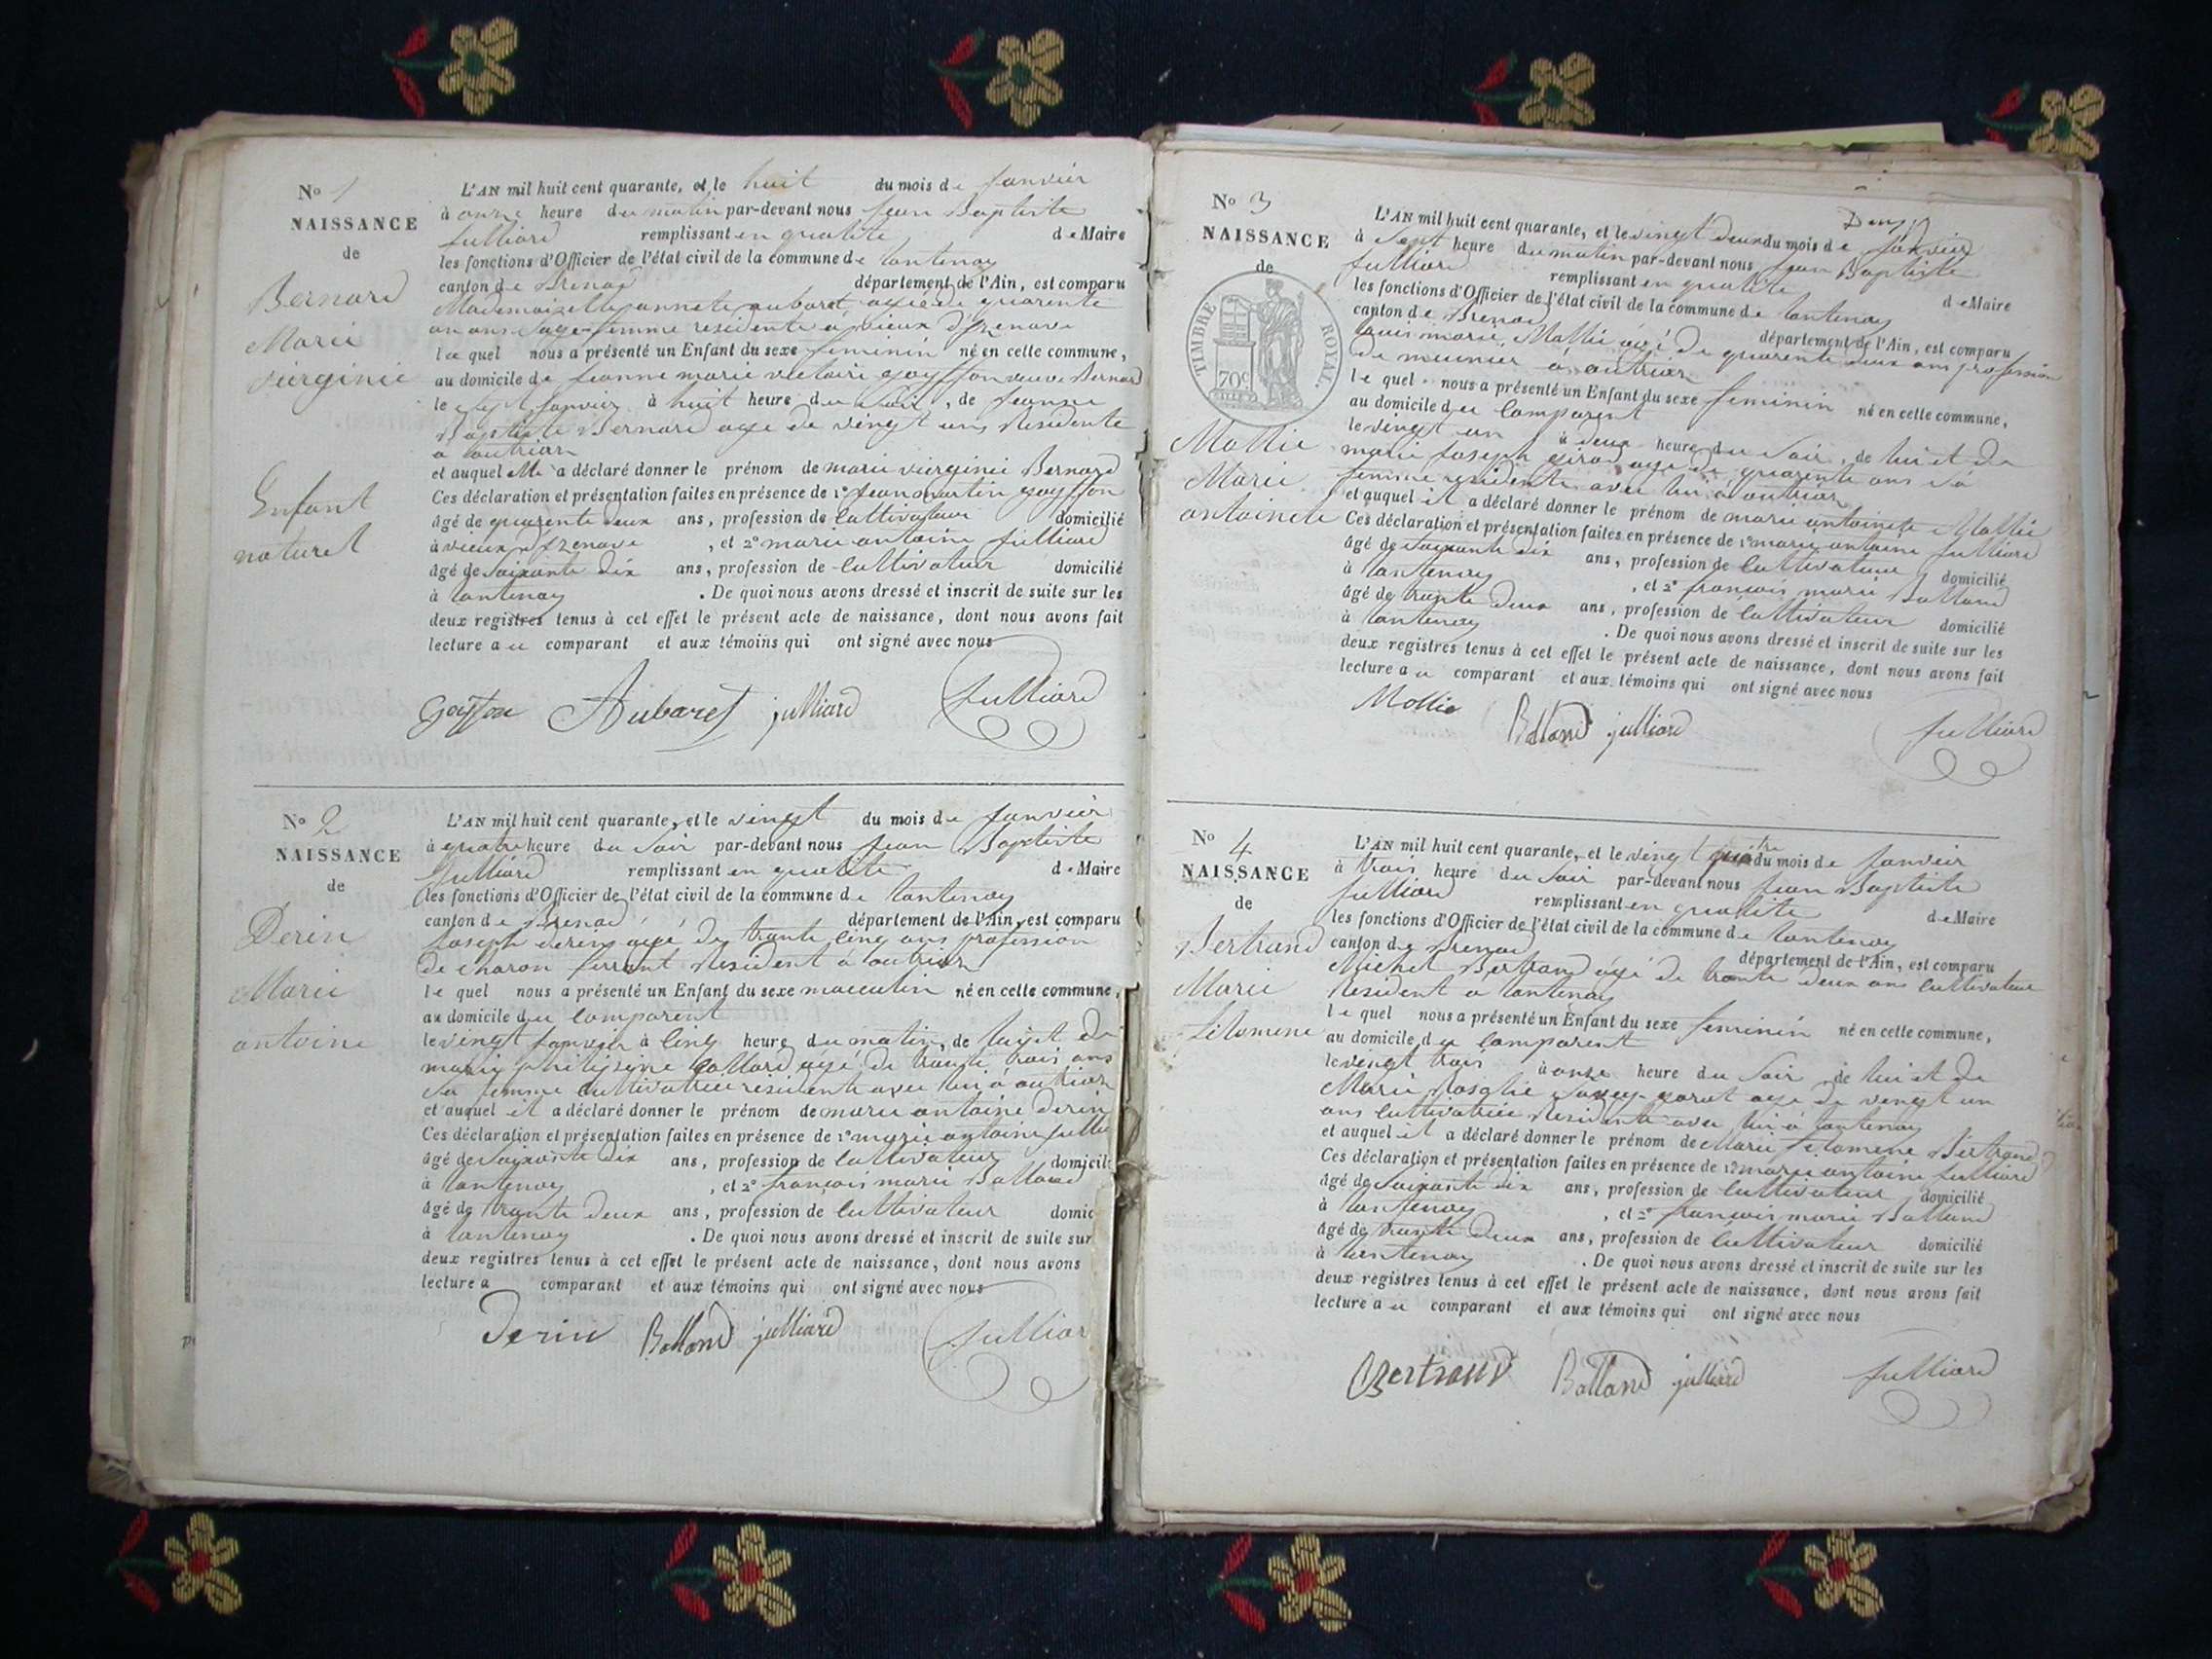 No 1
NAISSANCE
de
Bernard
Marie
vierginie
Enfant
naturel
L'AN mil huit cent quarante, et le huit du mois de janvier
à onze heure du matin par-devant nous jean Baptiste
julliard remplissant en qualité de Maire
les fonctions d'Officier de l'état civil de la commune de lantenay
canton de Brenod département de l'Ain, est comparu
Mademoizelle annete aubaret agée de quarente
un ans sage-femme residente à vieux d'izenave
la quel nous a présenté un Enfant du sexe feminin né en cette commune,
au domicile de jeanne marie victoire goyffon veuve Bernard
le sept janvier à huit heure du soir, de jeanne
Baptiste Bernard agé de vingt ans Residente
a outriar
et auquel elle a déclaré donner le prénom de marie viergine Bernard
Ces déclaration et présentation faites en présence de 1º jean martin goyffon
âgé de quarente deux ans, profession de cultivateur domicilié
à vieux d'izenave, et 2º marie antoine julliard
âgé de soixante dix ans, profession de cultivateur domicilié
à lantenay. De quoi nous avons dressé et inscrit de suite sur les
deux registres tenus à cet effet le présent acte de naissance, dont nous avons fait
lecture au comparant et aux témoins qui ont signé avec nous
Goiffon Aubaret julliard julliard
No 2
NAISSANCE
de
Derin
Marie
antoine
L'AN mil huit cent quarante, et le vingt du mois de janvier
à quatre heure du soir par-devant nous jean Baptiste
julliard remplissant en qualité de Maire
les fonctions d'Officier de l'état civil de la commune de lantenay
canton de Brenod département de l'Ain, est comparu
joseph derin agé de trante cinq ans profession
de charon ferrant Resident a outriar
le quel nous a présenté un Enfant du sexe masculin né en cette commune,
au domicile du comparent
le vingt janvier à cinq heure du matin, de lui et de
marie balland agé de trante trois ans
sa femme cultivatrice residente avec lui à outriar
et auquel il a déclaré donner le prénom de marie antoine derin
Ces déclaration et présentation faites en présence de 1º marie antoine jullia
âgé de soixante dix ans, profession de cultivateur domicili
à lantenay, et 2º françois marie Balland
âgé de trante deux ans, profession de cultivateur domic
à lantenay. De quoi nous avons dressé et inscrit de suite sur
deux registres tenus à cet effet le présent acte de naissance, dont nous avons
lecture a comparant et aux témoins qui ont signé avec nous
Derin Balland julliard julliar
No 3
NAISSANCE
de
TIMBRE ROYAL.
70c
Mollie
Marie
antoinete
L'AN mil huit cent quarante, et le vingt deux du mois de janvier
à sept heure du matin par-devant nous jean Baptiste
julliard remplissant en qualité de Maire
les fonctions d'Officier de l'état civil de la commune de lantenay
canton de Brenod département de l'Ain, est comparu
louis marie Mollie agé de quarente deux ans profession
de meunier à outriar
le quel nous a présenté un Enfant du sexe feminin né en cette commune,
au domicile du comparent
le vingt un à deux heure du soir, de lui et de
marie joseph girod agé de quarente ans sa
femme residente avec lui à outriar
et auquel il a déclaré donner le prénom de marie antoinete Mollie
Ces déclaration et présentation faites en présence de 1º marie antoine julliard
âgé de soixante dix ans, profession de cultivateur domicilié
à lantenay, et 2º françois marie Balland
âgé de trante deux ans, profession de cultivateur domicilié
à lantenay. De quoi nous avons dressé et inscrit de suite sur les
deux registres tenus à cet effet le présent acte de naissance, dont nous avons fait
lecture au comparant et aux témoins qui ont signé avec nous
Mollie Balland julliard julliard
No 4
NAISSANCE
de
Bertrand
Marie
filomene
L'AN mil huit cent quarante, et le vingt quatre du mois de janvier
à trois heure du soir par-devant nous jean Baptiste
julliard remplissant en qualité de Maire
les fonctions d'Officier de l'état civil de la commune de lantenay
canton de Brenod département de l'Ain, est comparu
Michel Bertrand agé de trante deux ans cultivateur
Resident a lantenay
le quel nous a présenté un Enfant du sexe feminin né en cette commune,
au domicile du comparent
le vingt trois à onze heure du soir de lui et de
Marie Rosalie agé de vingt un
ans cultivatrice Residente avec lui à lantenay
et auquel il a déclaré donner le prénom de Marie filomene Bertrand
Ces déclaration et présentation faites en présence de 1º marie antoine julliard
âgé de soixante dix ans, profession de cultivateur domicilié
à lantenay, et 2º françois marie Balland
âgé de trante deux ans, profession de cultivateur domicilié
à lantenay. De quoi nous avons dressé et inscrit de suite sur les
deux registres tenus à cet effet le présent acte de naissance, dont nous avons fait
lecture au comparant et aux témoins qui ont signé avec nous
Bertrand Balland julliard julliard